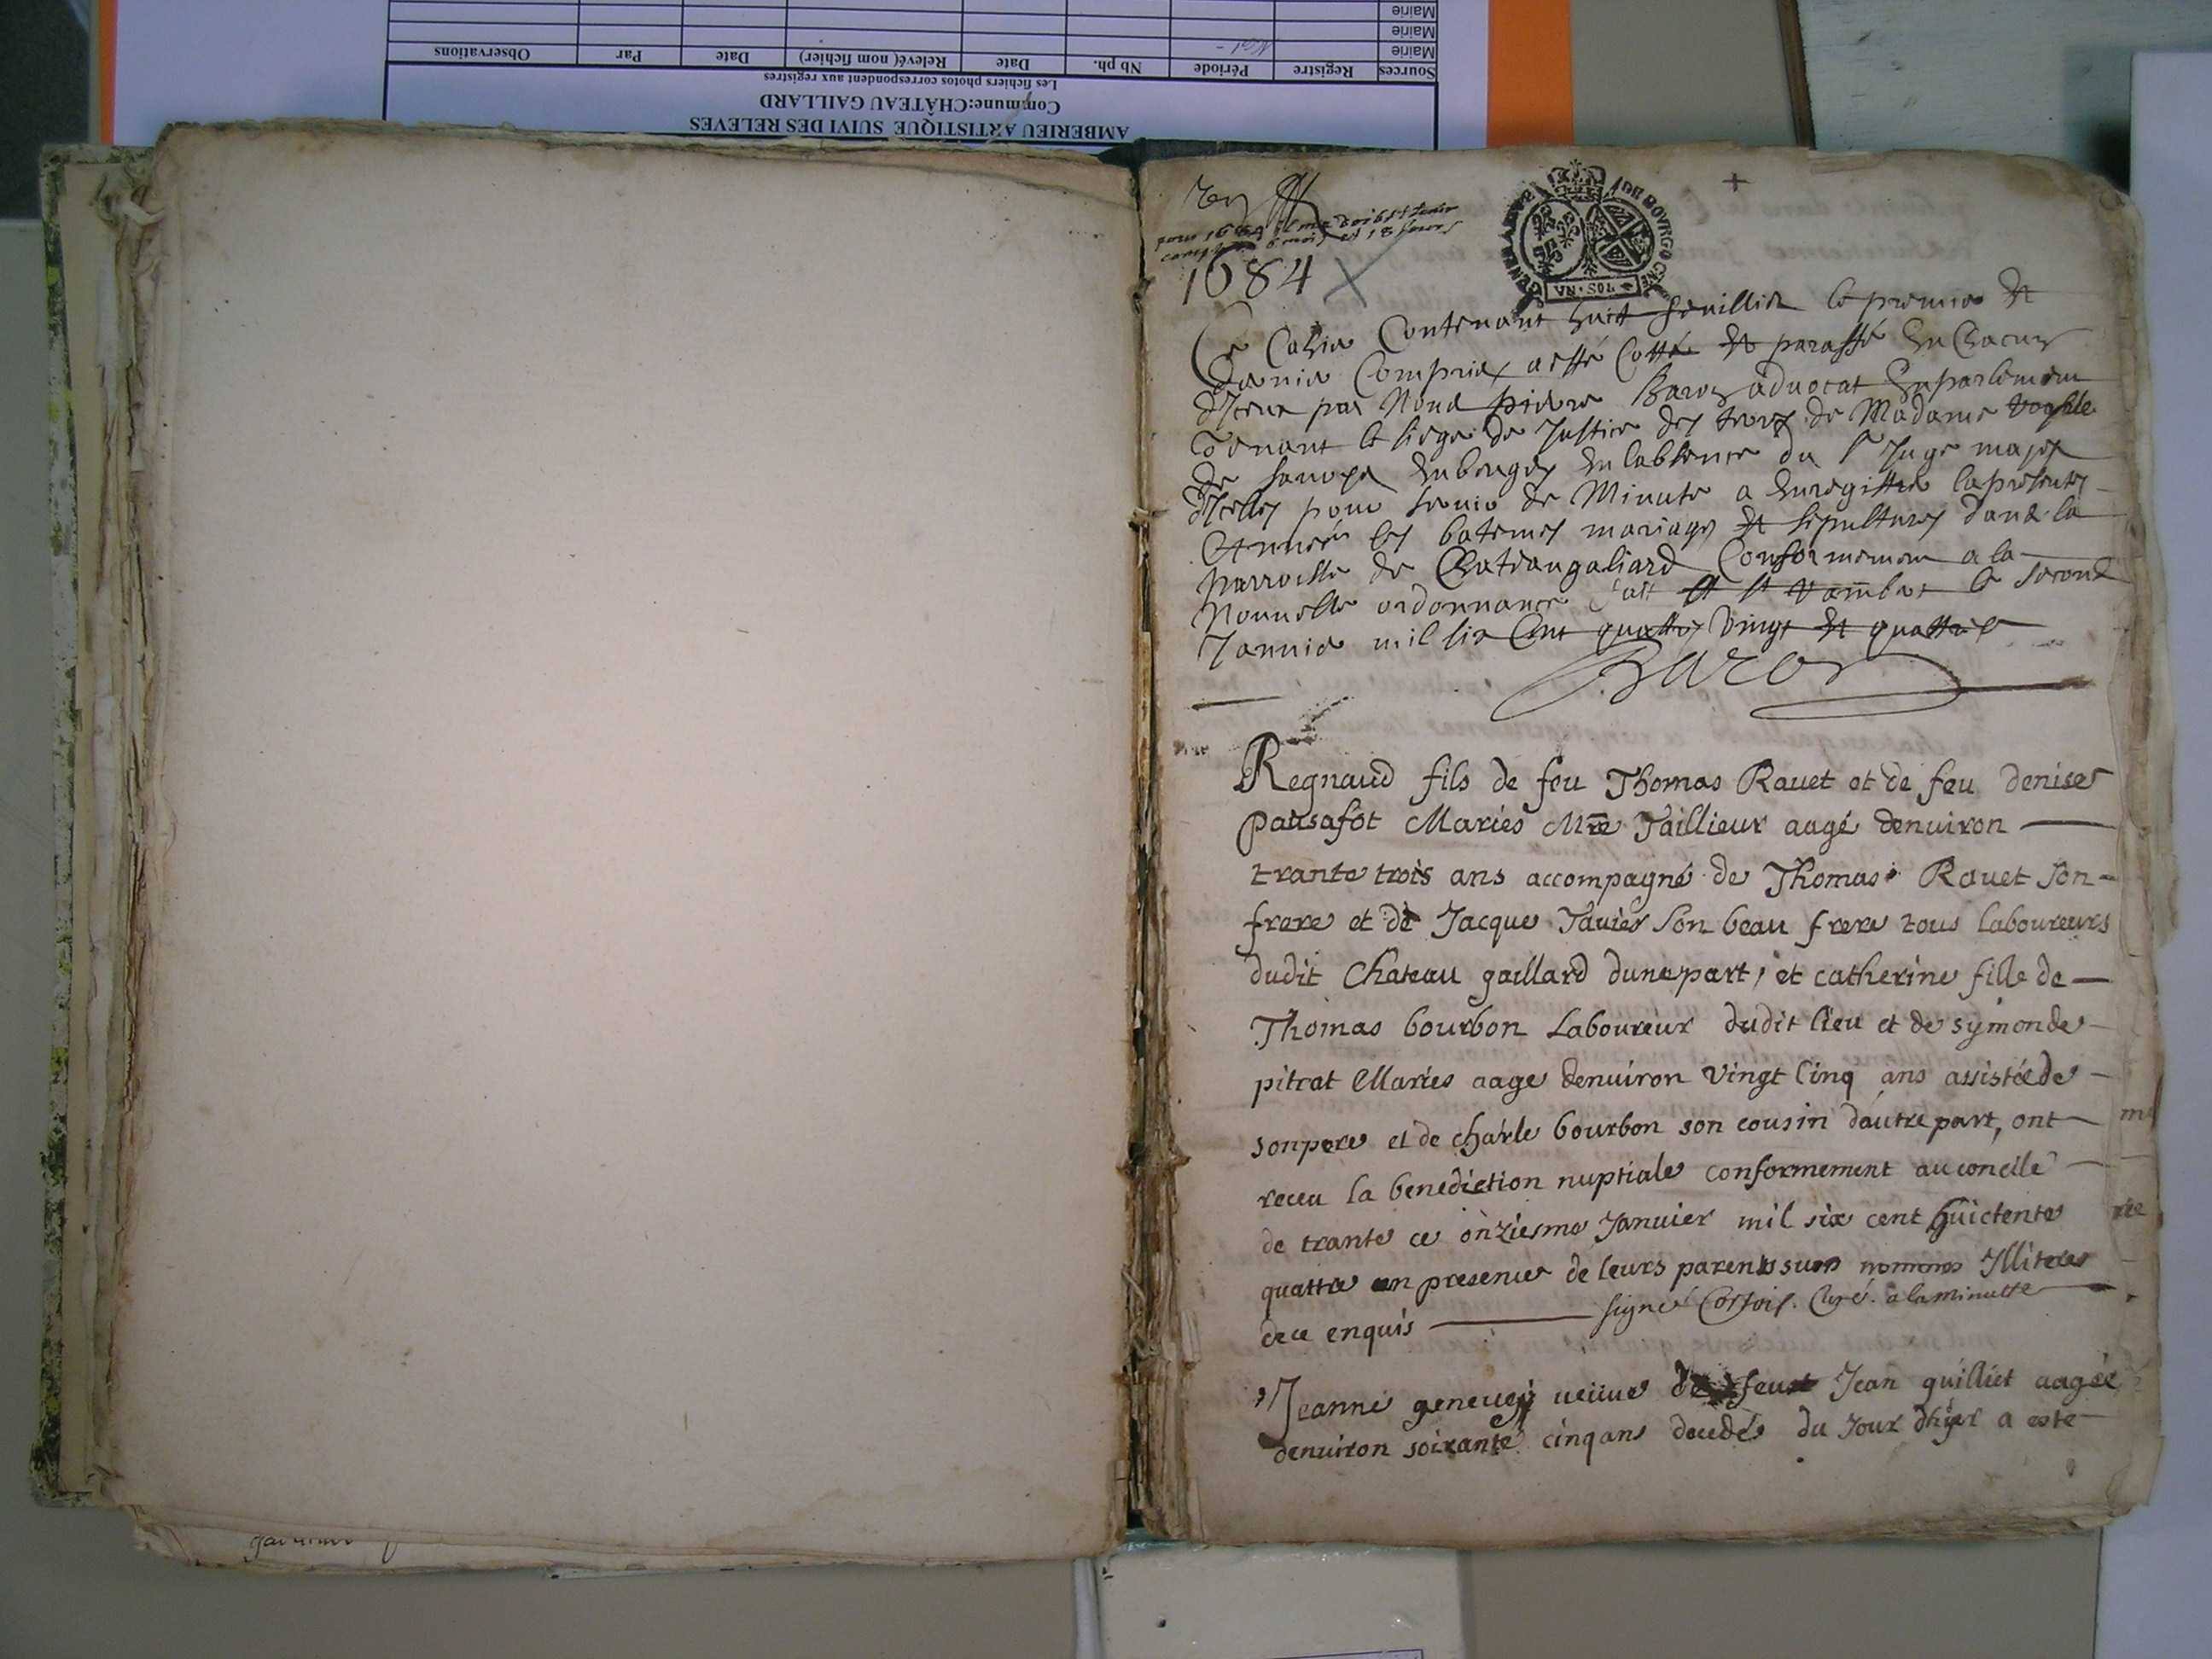 AMBERIEU ARTISTIQUE SUIVI DES RELEVES
Commune:CHÂTEAU GAILLARD
Les fichiers photos correspondent aux registres
Sources Registre Période Nb ph. Date Relevé( nom fichier) Date Par Observations
Mairie
Mairie
Mairie
1684
GENERA DE BOVRGOGNE
Ce Cahier Contenant huict feuillier le premier et
dernier Compris a esté Cotté et paraffé en Chacun
d'Iceux par Nous pierre Baron aduocat en parlement
Tenant le siege de Justice des terres de Madame
de sauoye en bugey en labsence du Sr Juge maje
d'Icelles pour seruir de Minute a enregistrer la presente
Année les batemes mariages et sepultures dans la
parroisse de Chateaugaliard Conformement a la
Nouuelle ordonnance fait a St Rambert le second
Januier mil six Cent quattre Vingt et quattre
Baron
Regnaud fils de feu Thomas Rauet et de feu denise
pansafot Mariés Mre Taillieur aagé denuiron
trante trois ans accompagné de Thomas Rauet son
frere et de Jacque Tauier son beau frere tous laboureurs
dudit Chateau gaillard dune part, et catherine fille de
Thomas bourbon Laboureur dudit lieu et de symonde
pitrat Mariés aage denuiron vingt cinq ans assistée de
son pere et de charle bourbon son cousin dautre part, ont
receu la benediction nuptiale conformement au concile
de trante ce onziesme Januier mil six cent huictente
quattre en presence de leurs parents sus nommes Illiteres
de ce enquis signé Cortois. Curé. a la minutte
Jeanne geneuey ueüue de feust Jean guilliet aagée
denuiron soixante cinq ans decedée du Jour dhyer a esté